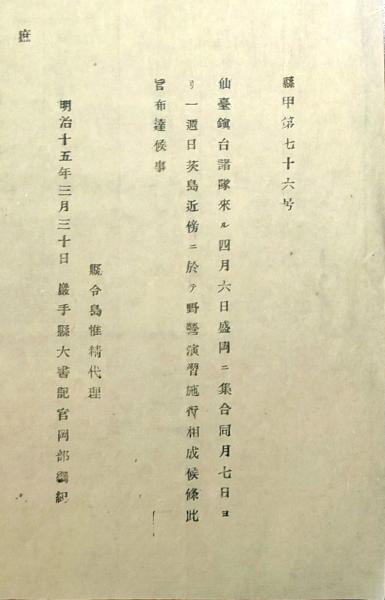 縣甲第七十六号
仙臺鎭台諸隊來ル四月六日盛岡ニ集合同月七日ヨ
リ一週日茨島近傍ニ於テ野營演習施行相成候條此
旨布達候事
縣令島惟精代理
明治十五年三月三十日 巖手縣大書記官岡部綱紀
庶